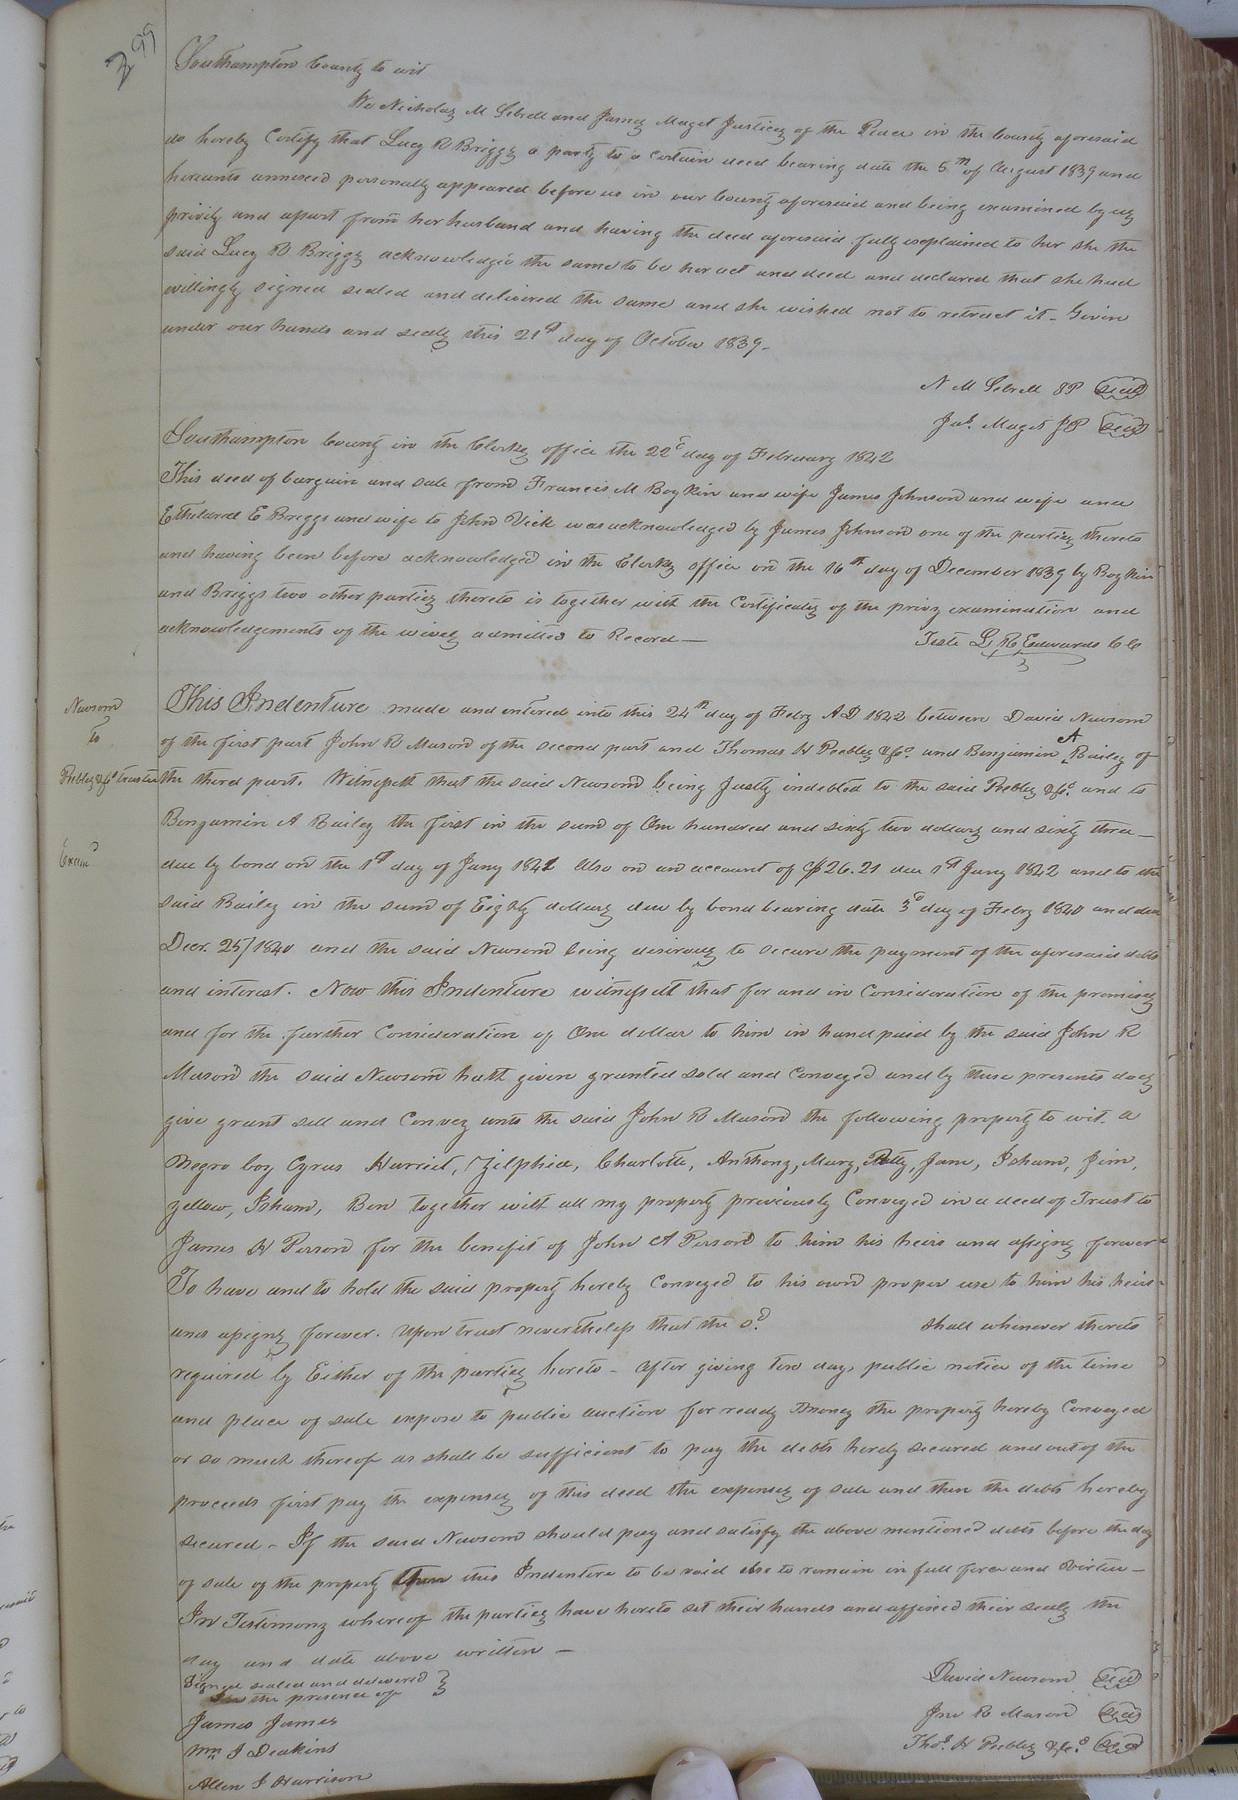 299
Southampton County to wit
We Nicholas M Sebrell and James Maget Justices of the Peace in the County aforesaid
do hereby Certify that Lucy R Briggs a party to a certain deed bearing date the 5th of August 1839 and
hereunto annexed personally appeared before us in our County aforesaid and being examined by us
privily and apart from her husband and having the deed aforesaid fully explained to her she the
said Lucy R Briggs acknowledged the same to be her act and deed and declared that she had
willingly signed sealed and delivered the same and she wished not to retract it. Given
under our hands and seals this 21st day of October 1839.
N M Sebrell JP Seal
Jas. Maget JP Seal
Southampton County in the Clerks office the 22d day of February 1842
This deed of bargain and sale from Francis M Boykin and wife James Johnson and wife and
Etheldred E Briggs and wife to John Vick was acknowledged by James Johnson one of the parties thereto
and having been before acknowledged in the Clerks office on the 16th day of December 1839 by Boykin
and Briggs two other parties thereto is together with the Certificates of the privy examination and
acknowledgements of the wives admitted to Record—
Teste L R Edwards CC
Newsom
to
Peebles &Co trustee
Examd
This Indenture made and entered into this 24th day of Feby AD 1842 between David Newsom
of the first part John R Mason of the second part and Thomas H Peebles &Co. and Benjamin A Bailey of
the third part. Witnesseth that the said Newsom being Justly indebted to the said Peebles &Co. and to
Benjamin A Bailey the first in the sum of One hundred and sixty two dollars and sixty three—
due by bond on the 1st day of Jany 1841 Also on an account of $26.21 due 1st Jany 1842 and to the
said Bailey in the sum of Eighty dollars due by bond bearing date 3d day of Feby 1840 and due
Decr. 25/1840 and the said Newsom being desirous to secure the payment of the aforesaid debts
and interest. Now this Indenture witnesseth that for and in Consideration of the premises
and for the further Consideration of One dollar to him in hand paid by the said John R
Mason the said Newsom hath given granted sold and Conveyed and by these presents does
give grant sell and Convey unto the said John R Mason the following property to wit. a
Negro boy Cyrus Harriet, Zilphia, Charlotte, Anthony, Mary, Patty, Jane, Isham, Jim,
yellow, Isham, Ben together with all my property previously Conveyed in a deed of Trust to
James W Person for the benefit of John A Person to him his heirs and assigns forever
To have and to hold the said property hereby Conveyed to his own proper use to him his heirs
and assigns forever. Upon trust nevertheless that the sd. shall whenever thereto
required by Either of the parties hereto - after giving ten days public notice of the time
and place of sale expose to public auction for ready Money the property hereby Conveyed
or so much thereof as shall be sufficient to pay the debts hereby secured and out of the
proceeds first pay the expenses of this deed the expenses of sale and then the debts hereby
secured - If the said Newsom should pay and satisfy the above mentioned debts before the day
of sale of the property then this Indenture to be void else to remain in full force and Virtue—
In Testimony whereof the parties have hereto set their hands and affixed their seals the
day and date above written —
Signed sealed and delivered
In the presence of
James James
Wm J Deakins
Allen J Harrison
David Newsom Seal
Jno R Mason Seal
Thos. H Peebles &Co. Seal